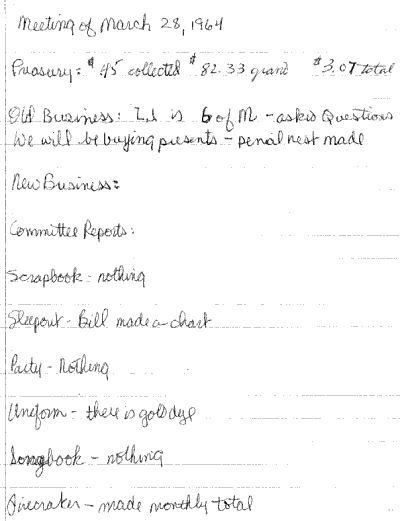 Meeting of March 28, 1964
Treasury: $.45 collected $82.33 grand $3.07 total
Old Business: I.I is G of M - asked Questions
We will be buying presents - nest made
New Business:
Committee Reports:
Scrapbook - nothing
Sleepout - Bill made a chart
Party - Nothing
Uniform - there is gold dye
Songbook - nothing
Firecraker - made monthly total